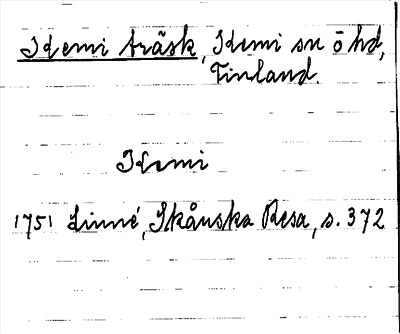 Kemi träsk, Kemi sn ö hd,
Finland.
Kemi
1751 Linné, Skånska Resa, s. 372